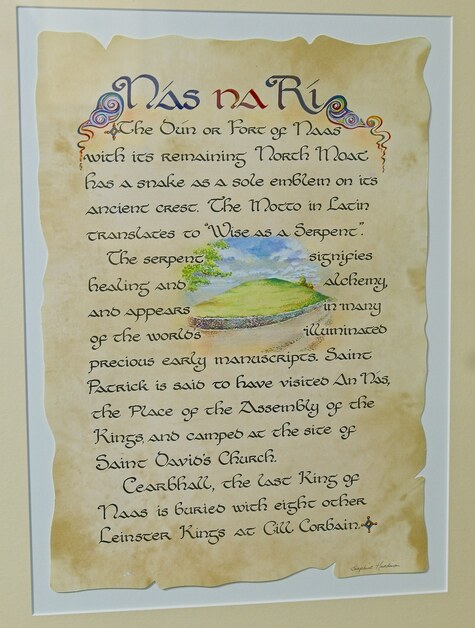 Nás na Rí
The Dún or Fort of Naas
with its remaining North Moat
has a snake as a sole emblem on its
ancient crest. The Motto in Latin
translates to "Wise as a Serpent".
The serpent signifies
healing and alchemy,
and appears in many
of the world's illuminated
precious early manuscripts. Saint
Patrick is said to have visited An Nás,
the Place of the Assembly of the
Kings, and camped at the site of
Saint David's Church.
Cearbhall, the last King of
Naas is buried with eight other
Leinster Kings at Cill Corbain.